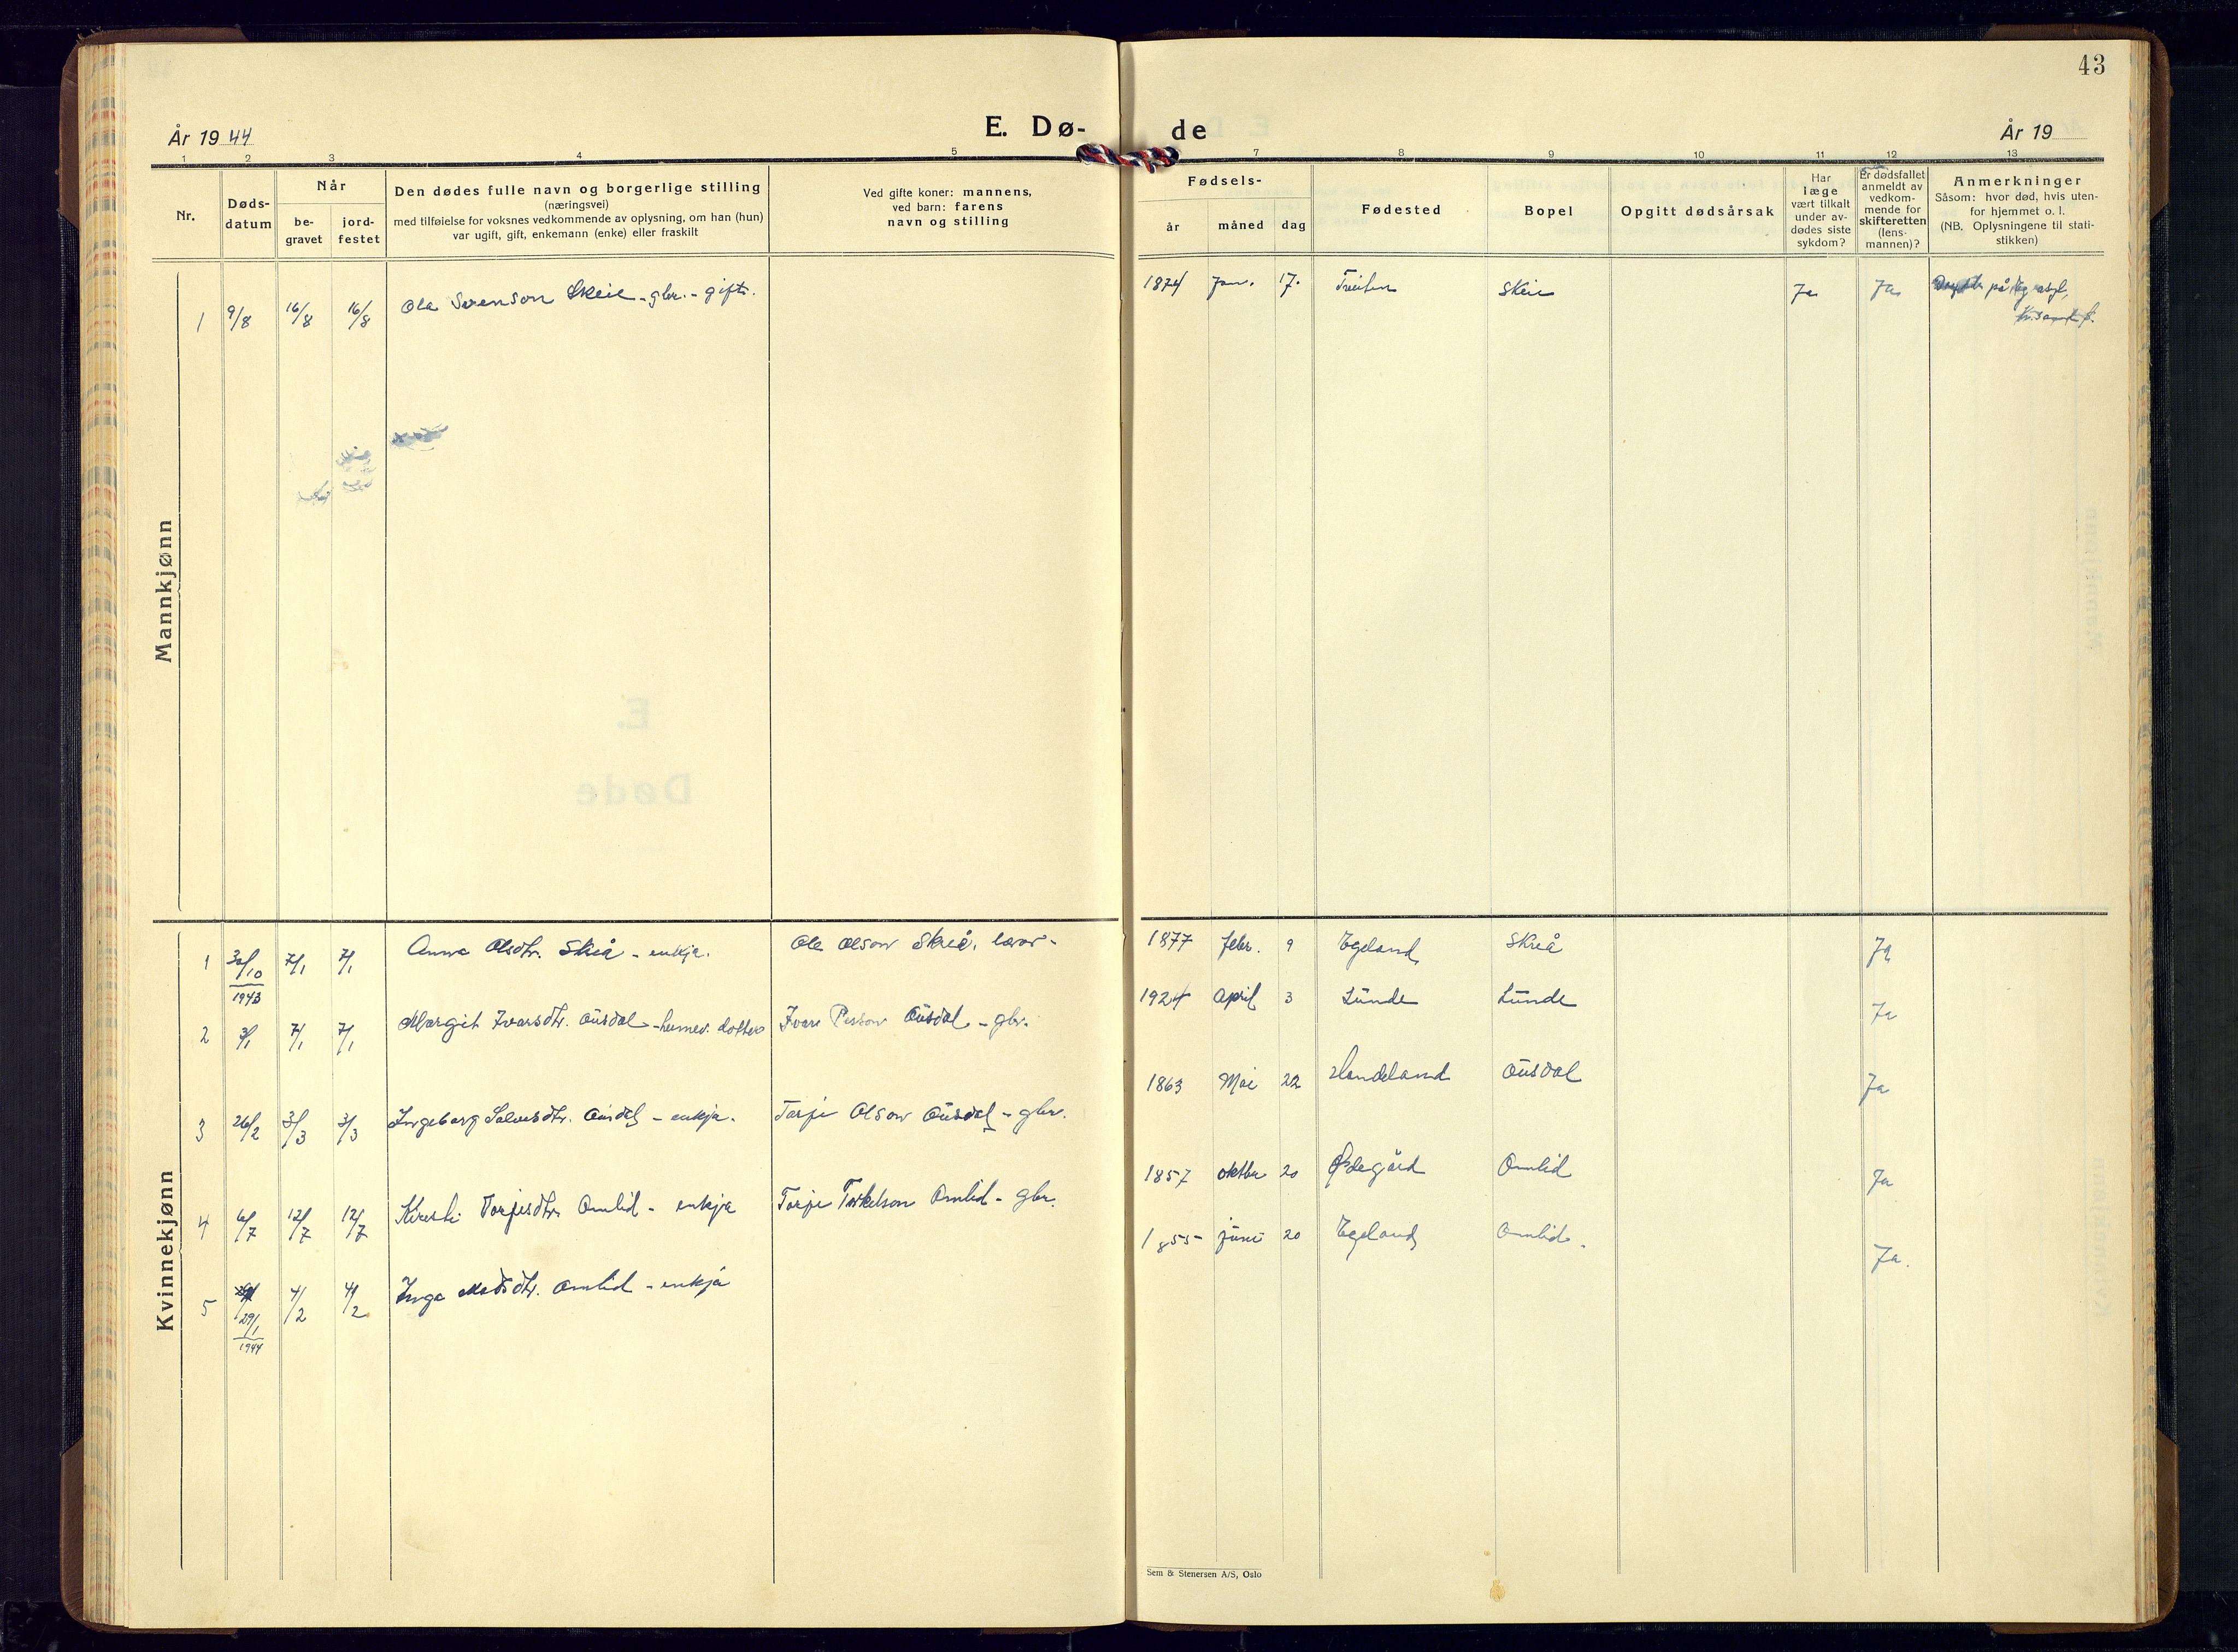 43
År 1944
E. Dø-
de
År 19
1 2 3 4 5 7 8 9 10 11 12 13
Nr.
Døds-
datum
Når
be-
gravet
jord-
festet
Den dødes fulle navn og borgerlige stilling
(næringsvei)
med tilføielse for voksnes vedkommende av oplysning, om han (hun)
var ugift, gift, enkemann (enke) eller fraskilt
Ved gifte koner: mannens,
ved barn: farens
navn og stilling
Fødsels-
år
måned
dag
Fødested
Bopel
Opgitt dødsårsak
Har
læge
vært tilkalt
under av-
dødes siste
sykdom?
Er dødsfallet
anmeldt av
vedkom-
mende for
skifteretten
(lens-
mannen)?
Anmerkninger
Såsom: hvor død, hvis uten-
for hjemmet o. l.
(NB. Oplysningene til stati-
stikken)
Mannkjønn
1 9/8 16/8 16/8 Ola Svenson Skeie - gbr. - gift. 1874 Jan. 17. Tveiten Skeie Ja Ja
på Eg asyl,
Kr.sand S.
Kvinnekjønn
1 30/10 1943 7/1 7/1 Anna Olsdtr. Skreå - enkja. Ola Olson Skreå, lærar - 1877 febr. 9 Egeland Skreå Ja
2 3/1 7/1 7/1 Margit Ivarsdtr. Ousdal - heimev. dotter Ivar Person Ousdal - gbr. 1924 April 3 Lunde Lunde Ja
3 26/2 3/3 3/3 Ingeborg Salvesdtr. Ousdal - enkja. Tarje Olson Ousdal - gbr. 1863 Mai 22 Handeland Ousdal Ja
4 6/7 12/7 12/7 Kirsti Torjesdtr. Omlid - enkja Torje Torkelson Omlid - gbr. 1857 oktbr 20 Ødegård Omlid Ja
5 29/1 1944 4/2 4/2 Inga Madsdtr. Omlid - enkja 1855 juni 20 Egeland Omlid. Ja.
Sem & Stenersen A/S, Oslo